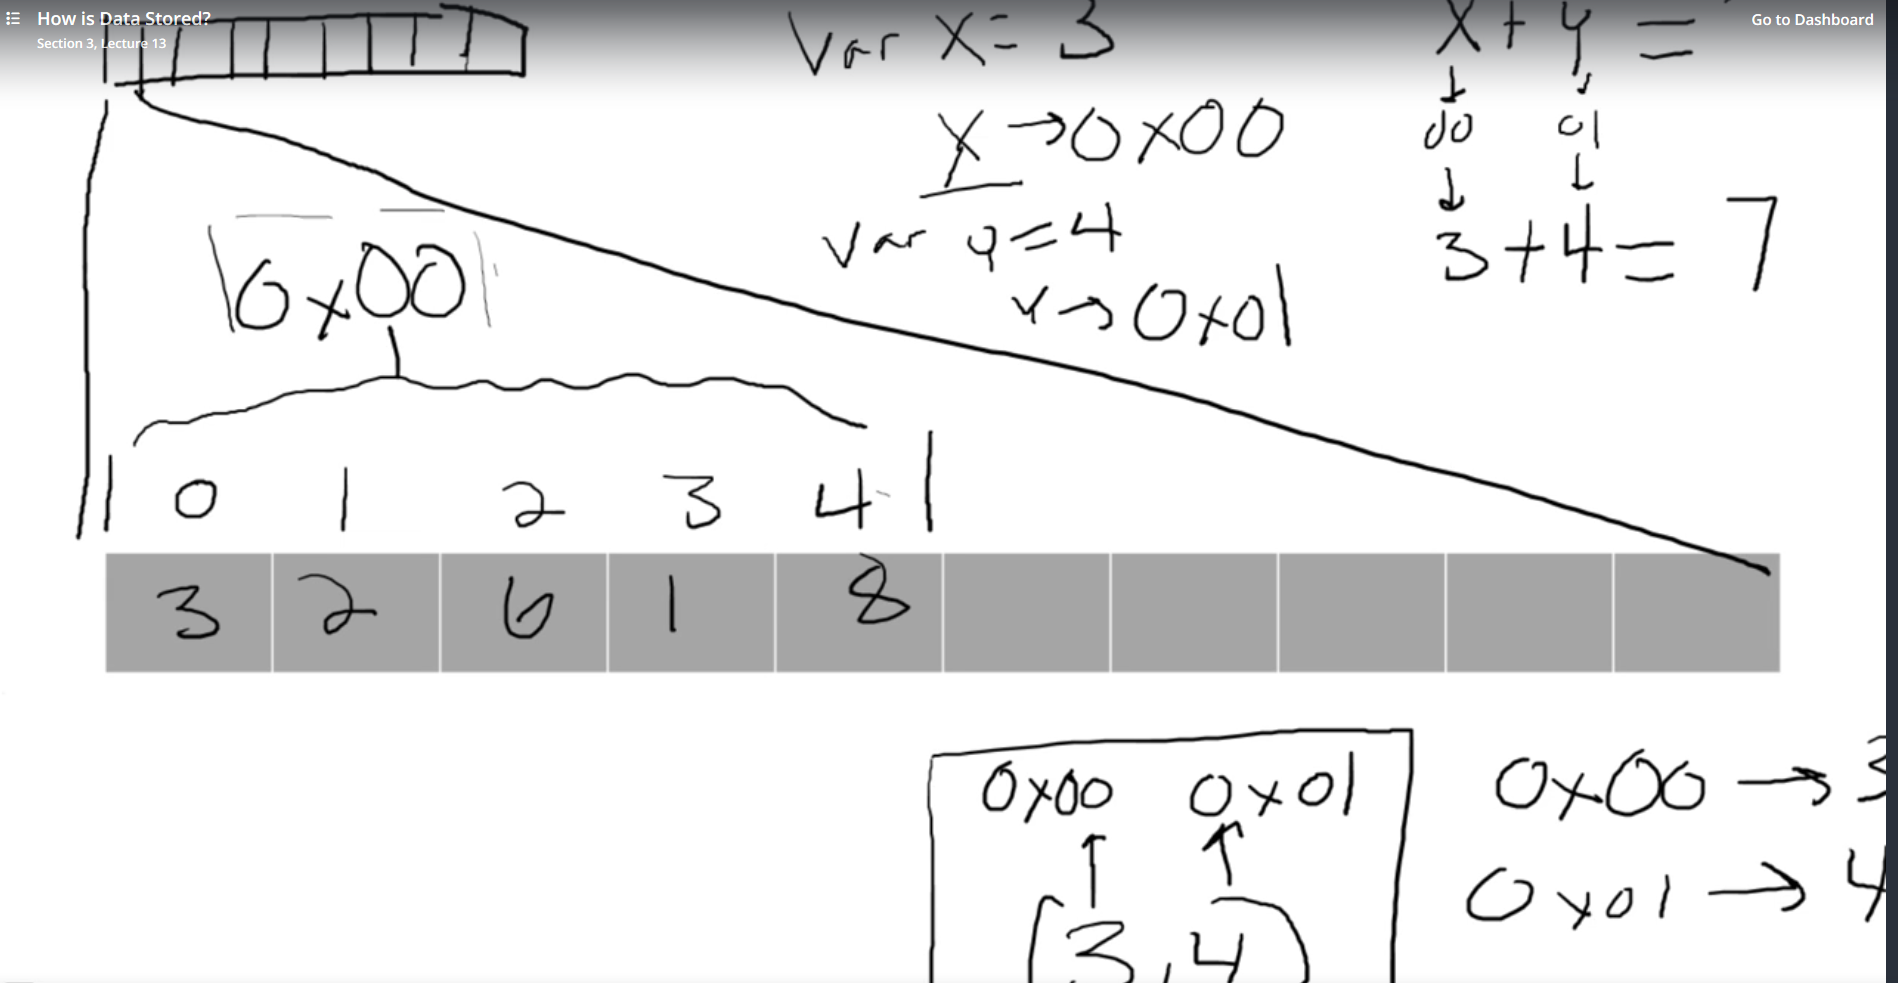 How is Data Stored?
Section 3, Lecture 13
Go to Dashboard
var x = 3
x + y =
x → 0x00
00 01
var y = 4
3 + 4 = 7
y → 0x01
0x00
0 1 2 3 4
3 2 6 1 8
0x00 0x01
0x00 → 3
0x01 → 4
(3, 4)